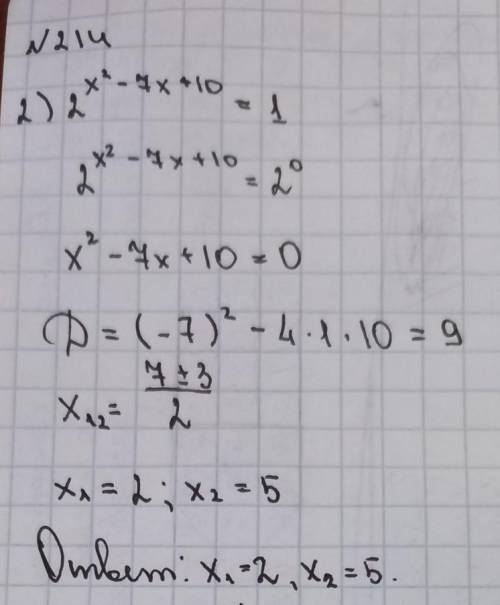 №214
2) 2^{x² - 7x + 10} = 1
2^{x² - 7x + 10} = 2⁰
x² - 7x + 10 = 0
D = (-7)² - 4·1·10 = 9
x₁₂ = \frac{7 ± 3}{2}
x₁ = 2; x₂ = 5
Ответ: x₁ = 2, x₂ = 5.